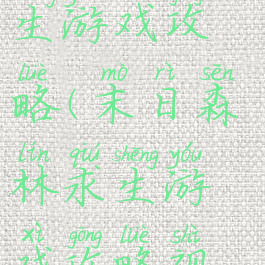 生游戏攻
lüè mò rì sēn
略(末日森
lín qiú shēng yóu
林求生游
xì gōng lüè shì
戏攻略视